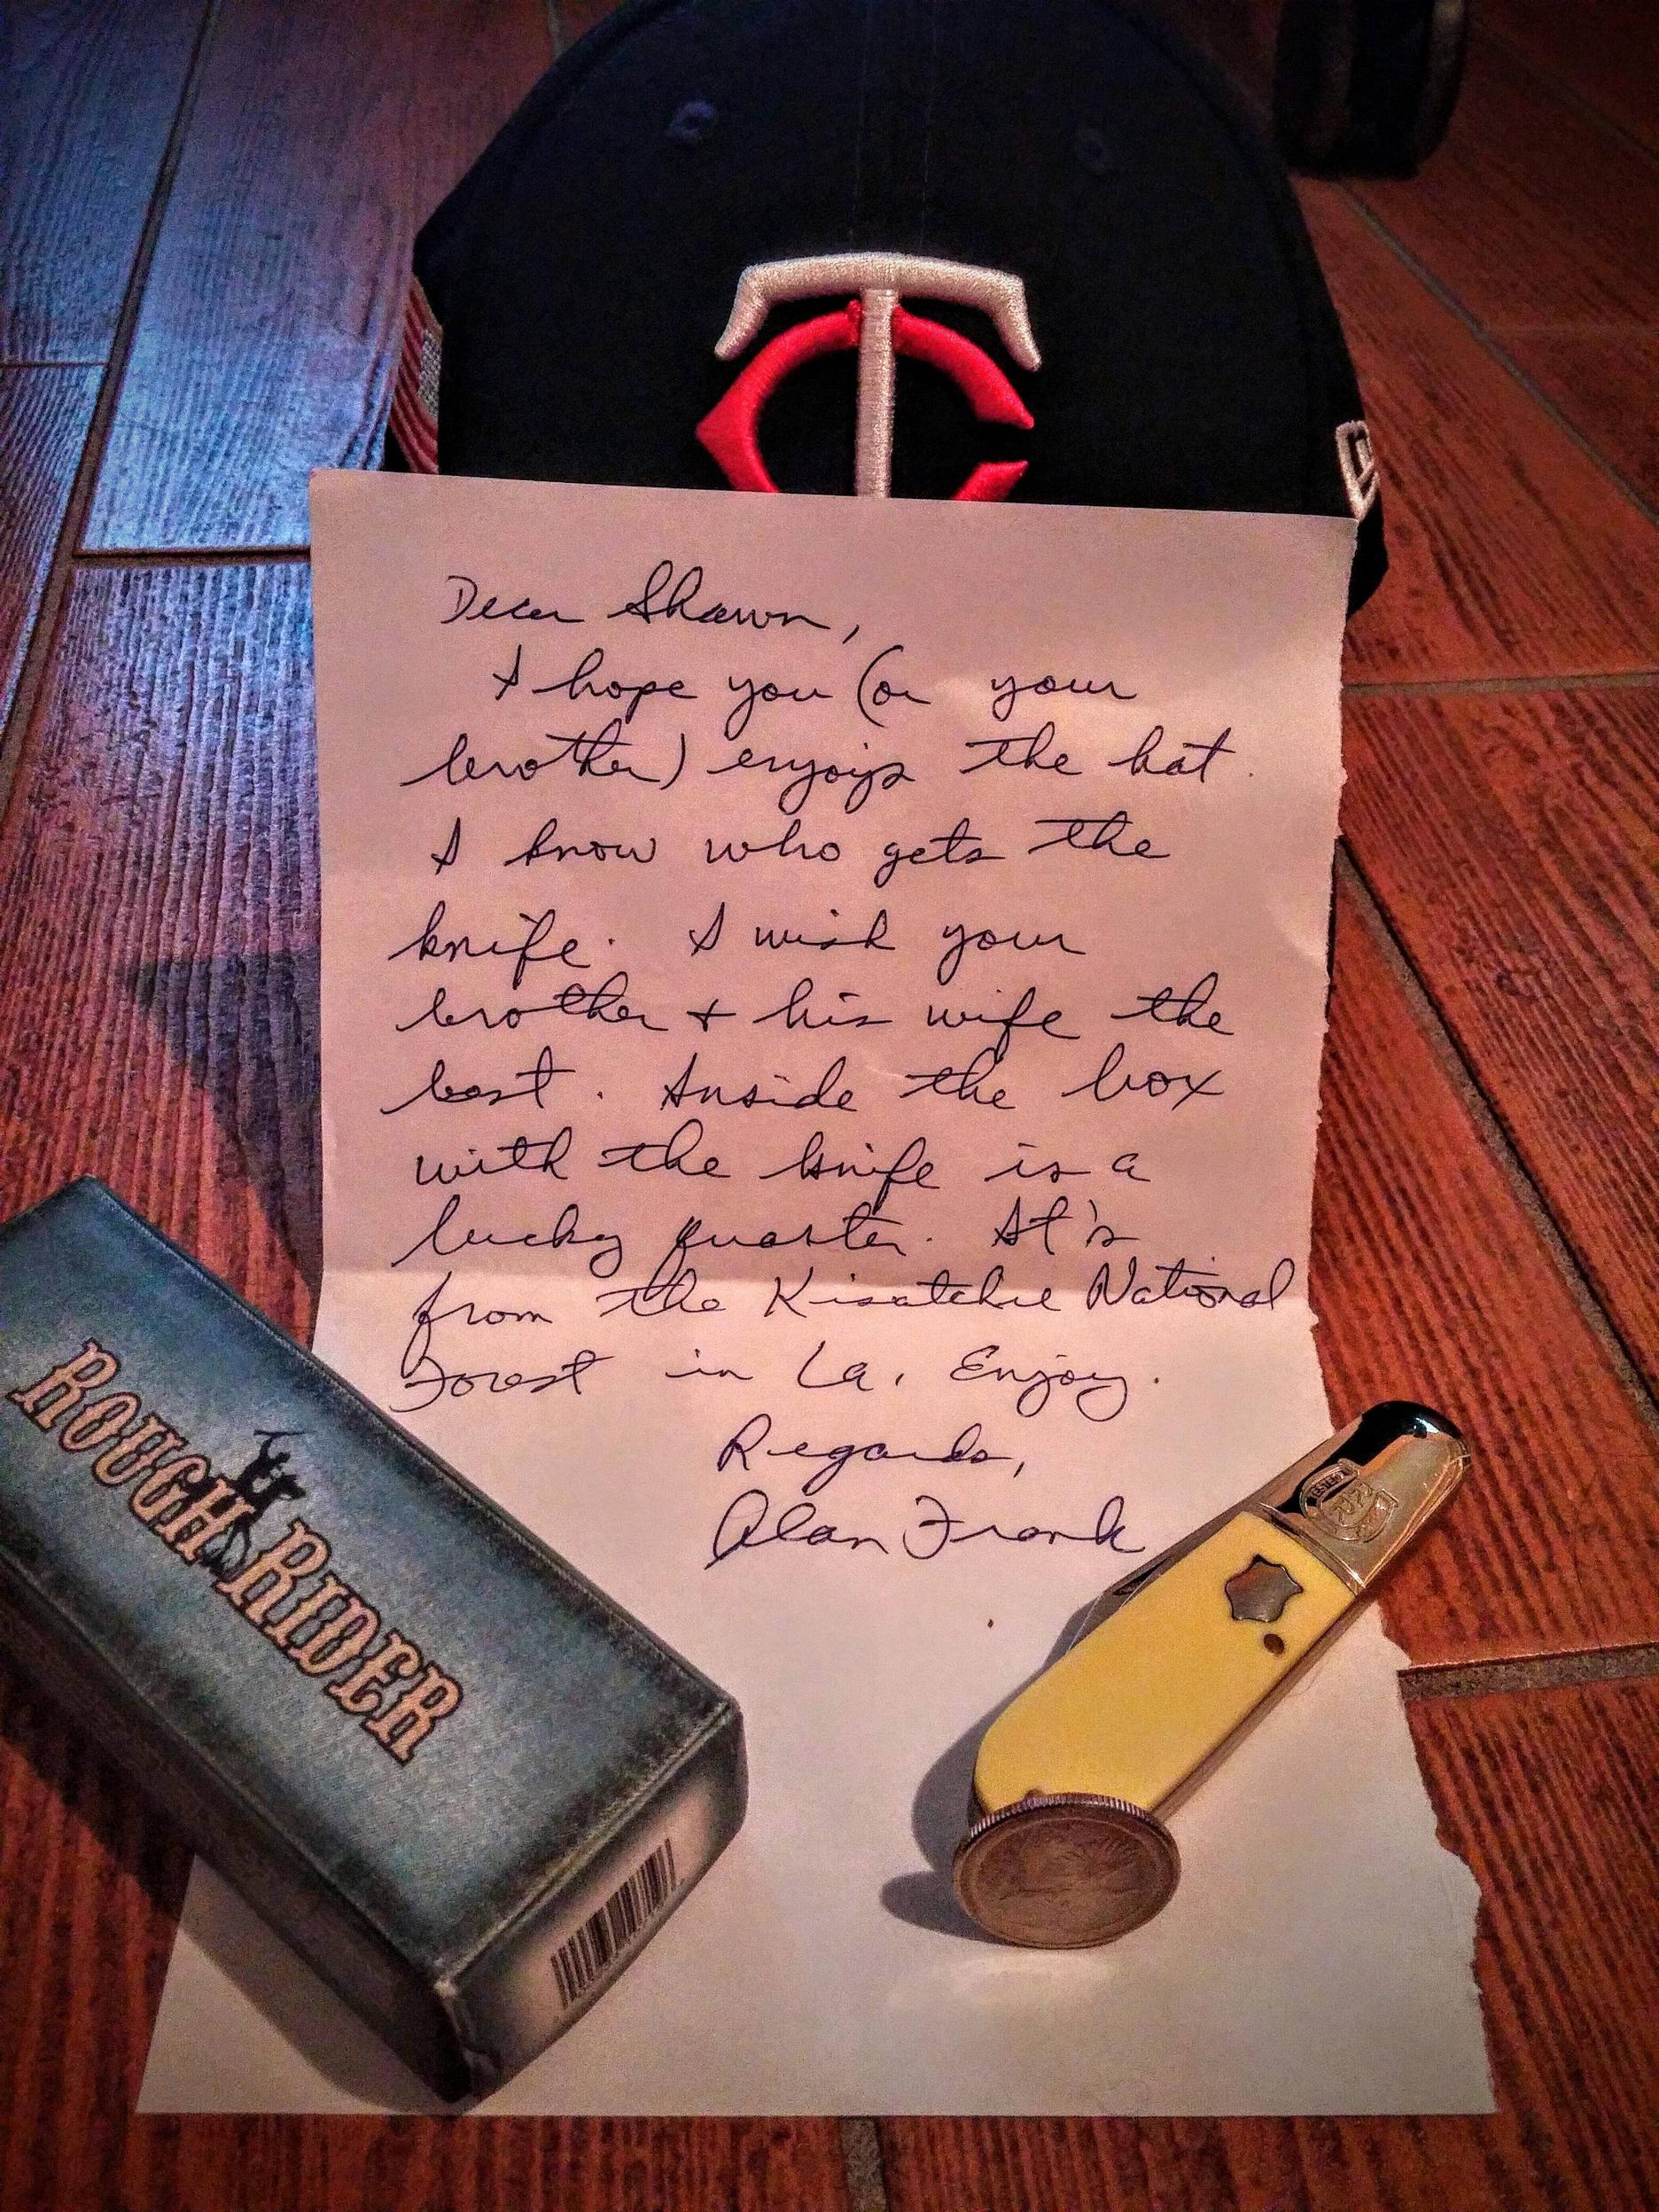 TC
Dear Shawn,
I hope you (or your
brother) enjoys the hat.
I know who gets the
knife. I wish your
brother + his wife the
best. Inside the box
with the knife is a
lucky quarter. It's
from the Kisatchie National
Forest in La. Enjoy.
Regards,
Alan Frank
ROUGH RIDER